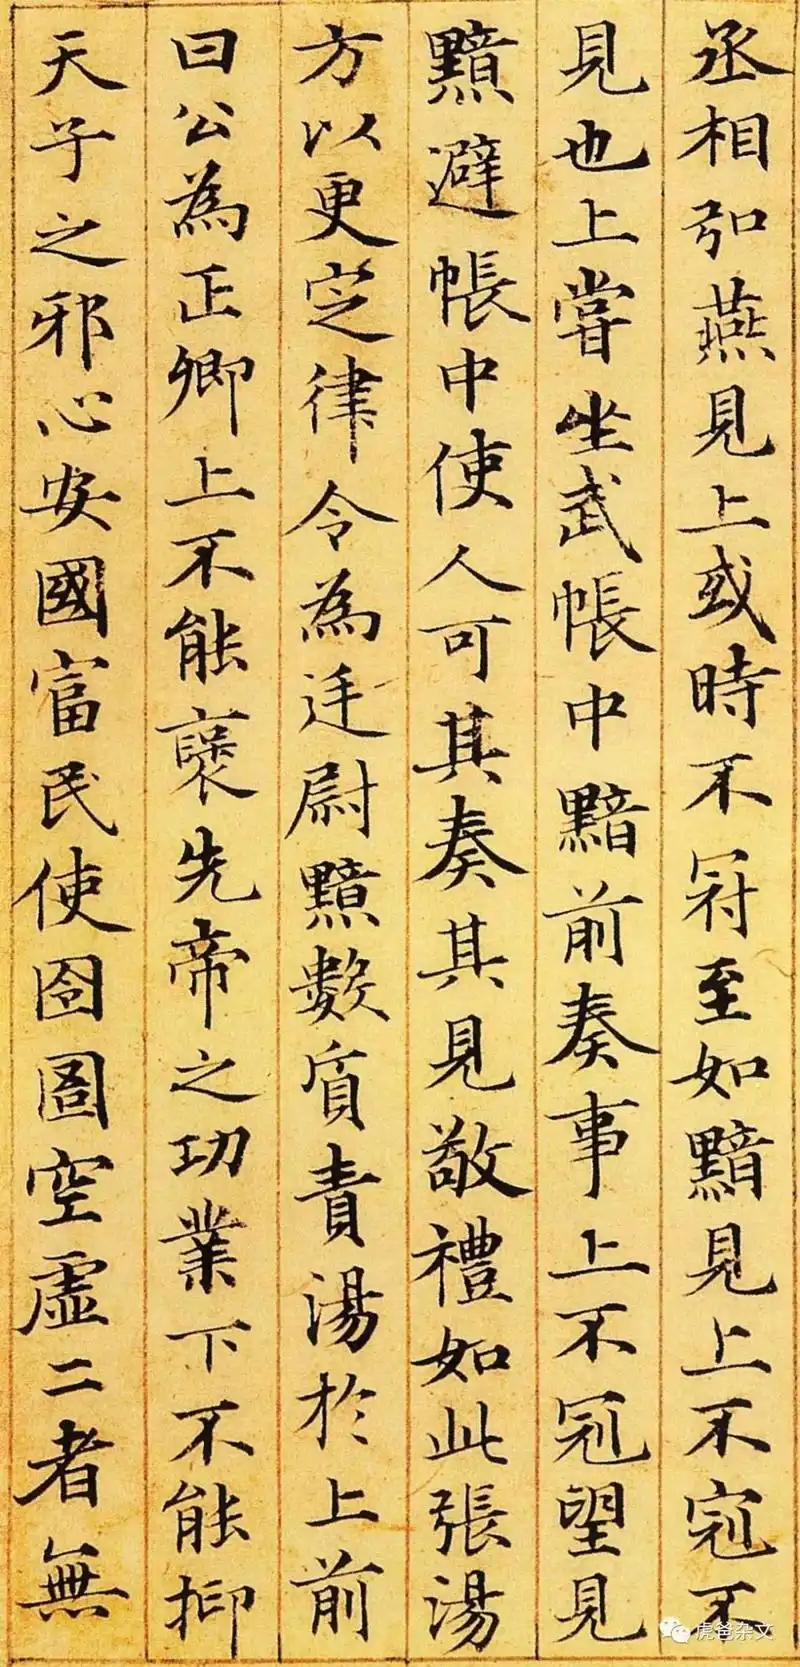 丞相弘燕見上或時不冠至如黯見上不冠不
見也上嘗坐武帳中黯前奏事上不冠望見
黯避帳中使人可其奏其見敬禮如此張湯
方以更定律令為廷尉黯數質責湯於上前
曰公為正卿上不能襃先帝之功業下不能抑
天子之邪心安國富民使囹圄空虛二者無
虎爸杂文